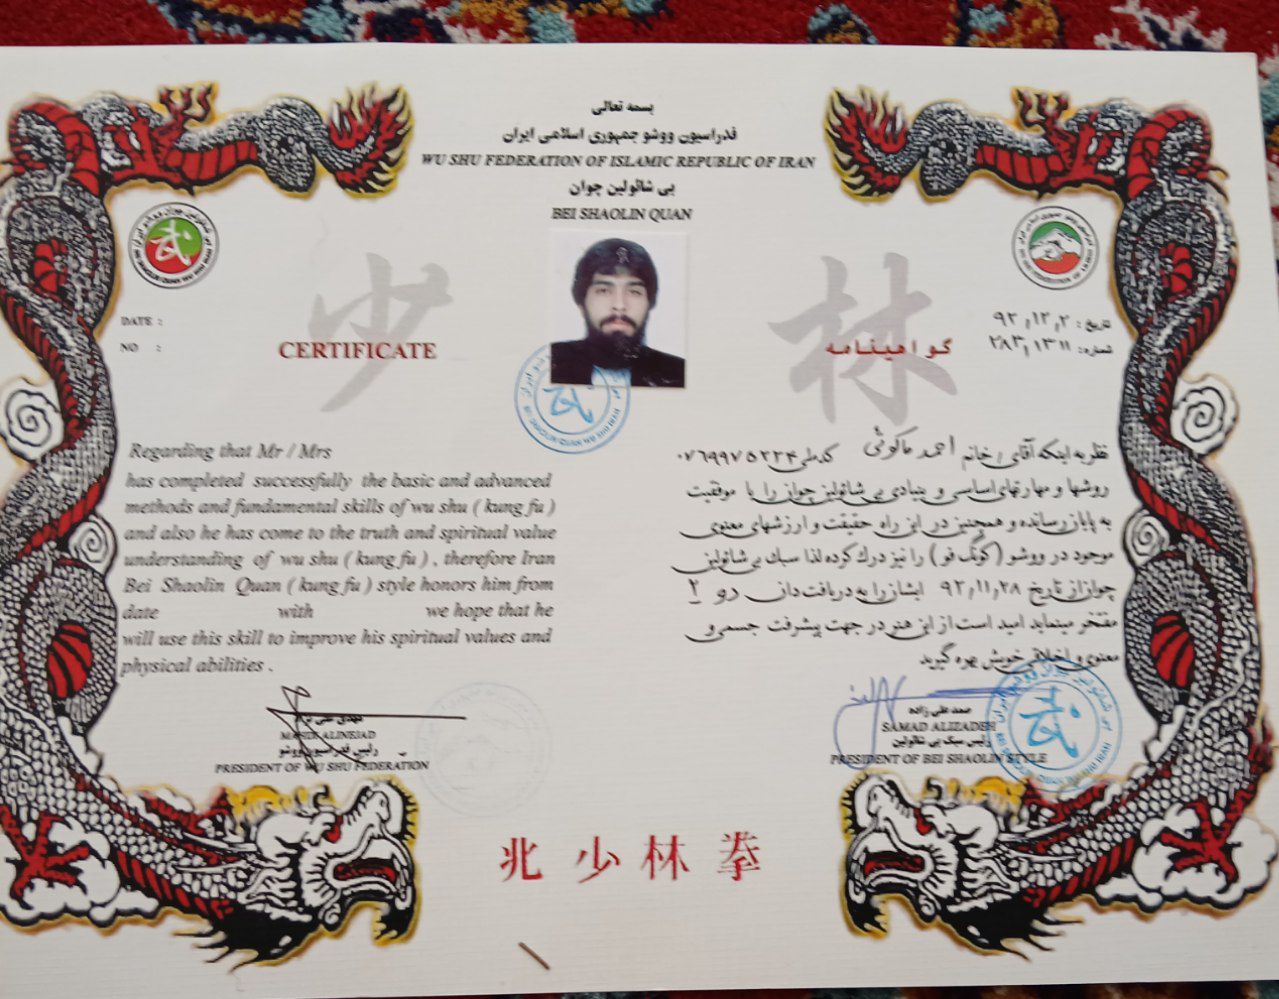 بسمه تعالی
فدراسیون ووشو جمهوری اسلامی ایران
WU SHU FEDERATION OF ISLAMIC REPUBLIC OF IRAN
بی شائولین چوان
BEI SHAOLIN QUAN
少
林
DATE :
NO :
CERTIFICATE
تاریخ : ۹۲,۱۲,۲
شماره : ۲۸۳,۱۳۱۱
گواهینامه
Regarding that Mr / Mrs
has completed successfully the basic and advanced
methods and fundamental skills of wu shu ( kung fu )
and also he has come to the truth and spiritual value
understanding of wu shu ( kung fu ) , therefore Iran
Bei Shaolin Quan ( kung fu ) style honors him from
date with we hope that he
will use this skill to improve his spiritual values and
physical abilities .
نظر به اینکه آقای / خانم احمد ماکوئی کدملی ۰۷۶۹۹۷۵۲۲۴
روشها و مهارتهای اساسی و بنیادی بی شائولین چوان را با موفقیت
به پایان رسانده و همچنین در این راه حقیقت و ارزشهای معنوی
موجود در ووشو (کونگ فو) را نیز درک کرده لذا سبک بی شائولین
چوان از تاریخ ۹۲,۱۱,۲۸ ایشان را به دریافت دان دو ۲
مفتخر مینماید امید است از این هنر در جهت پیشرفت جسمی و
معنوی و اخلاقی خویش بهره گیرید
مهدی علی نژاد
MAHDI ALINEJAD
رئیس فدراسیون ووشو
PRESIDENT OF WU SHU FEDERATION
صمد علی زاده
SAMAD ALIZADEH
رئیس سبک بی شائولین
PRESIDENT OF BEI SHAOLIN STYLE
北少林拳